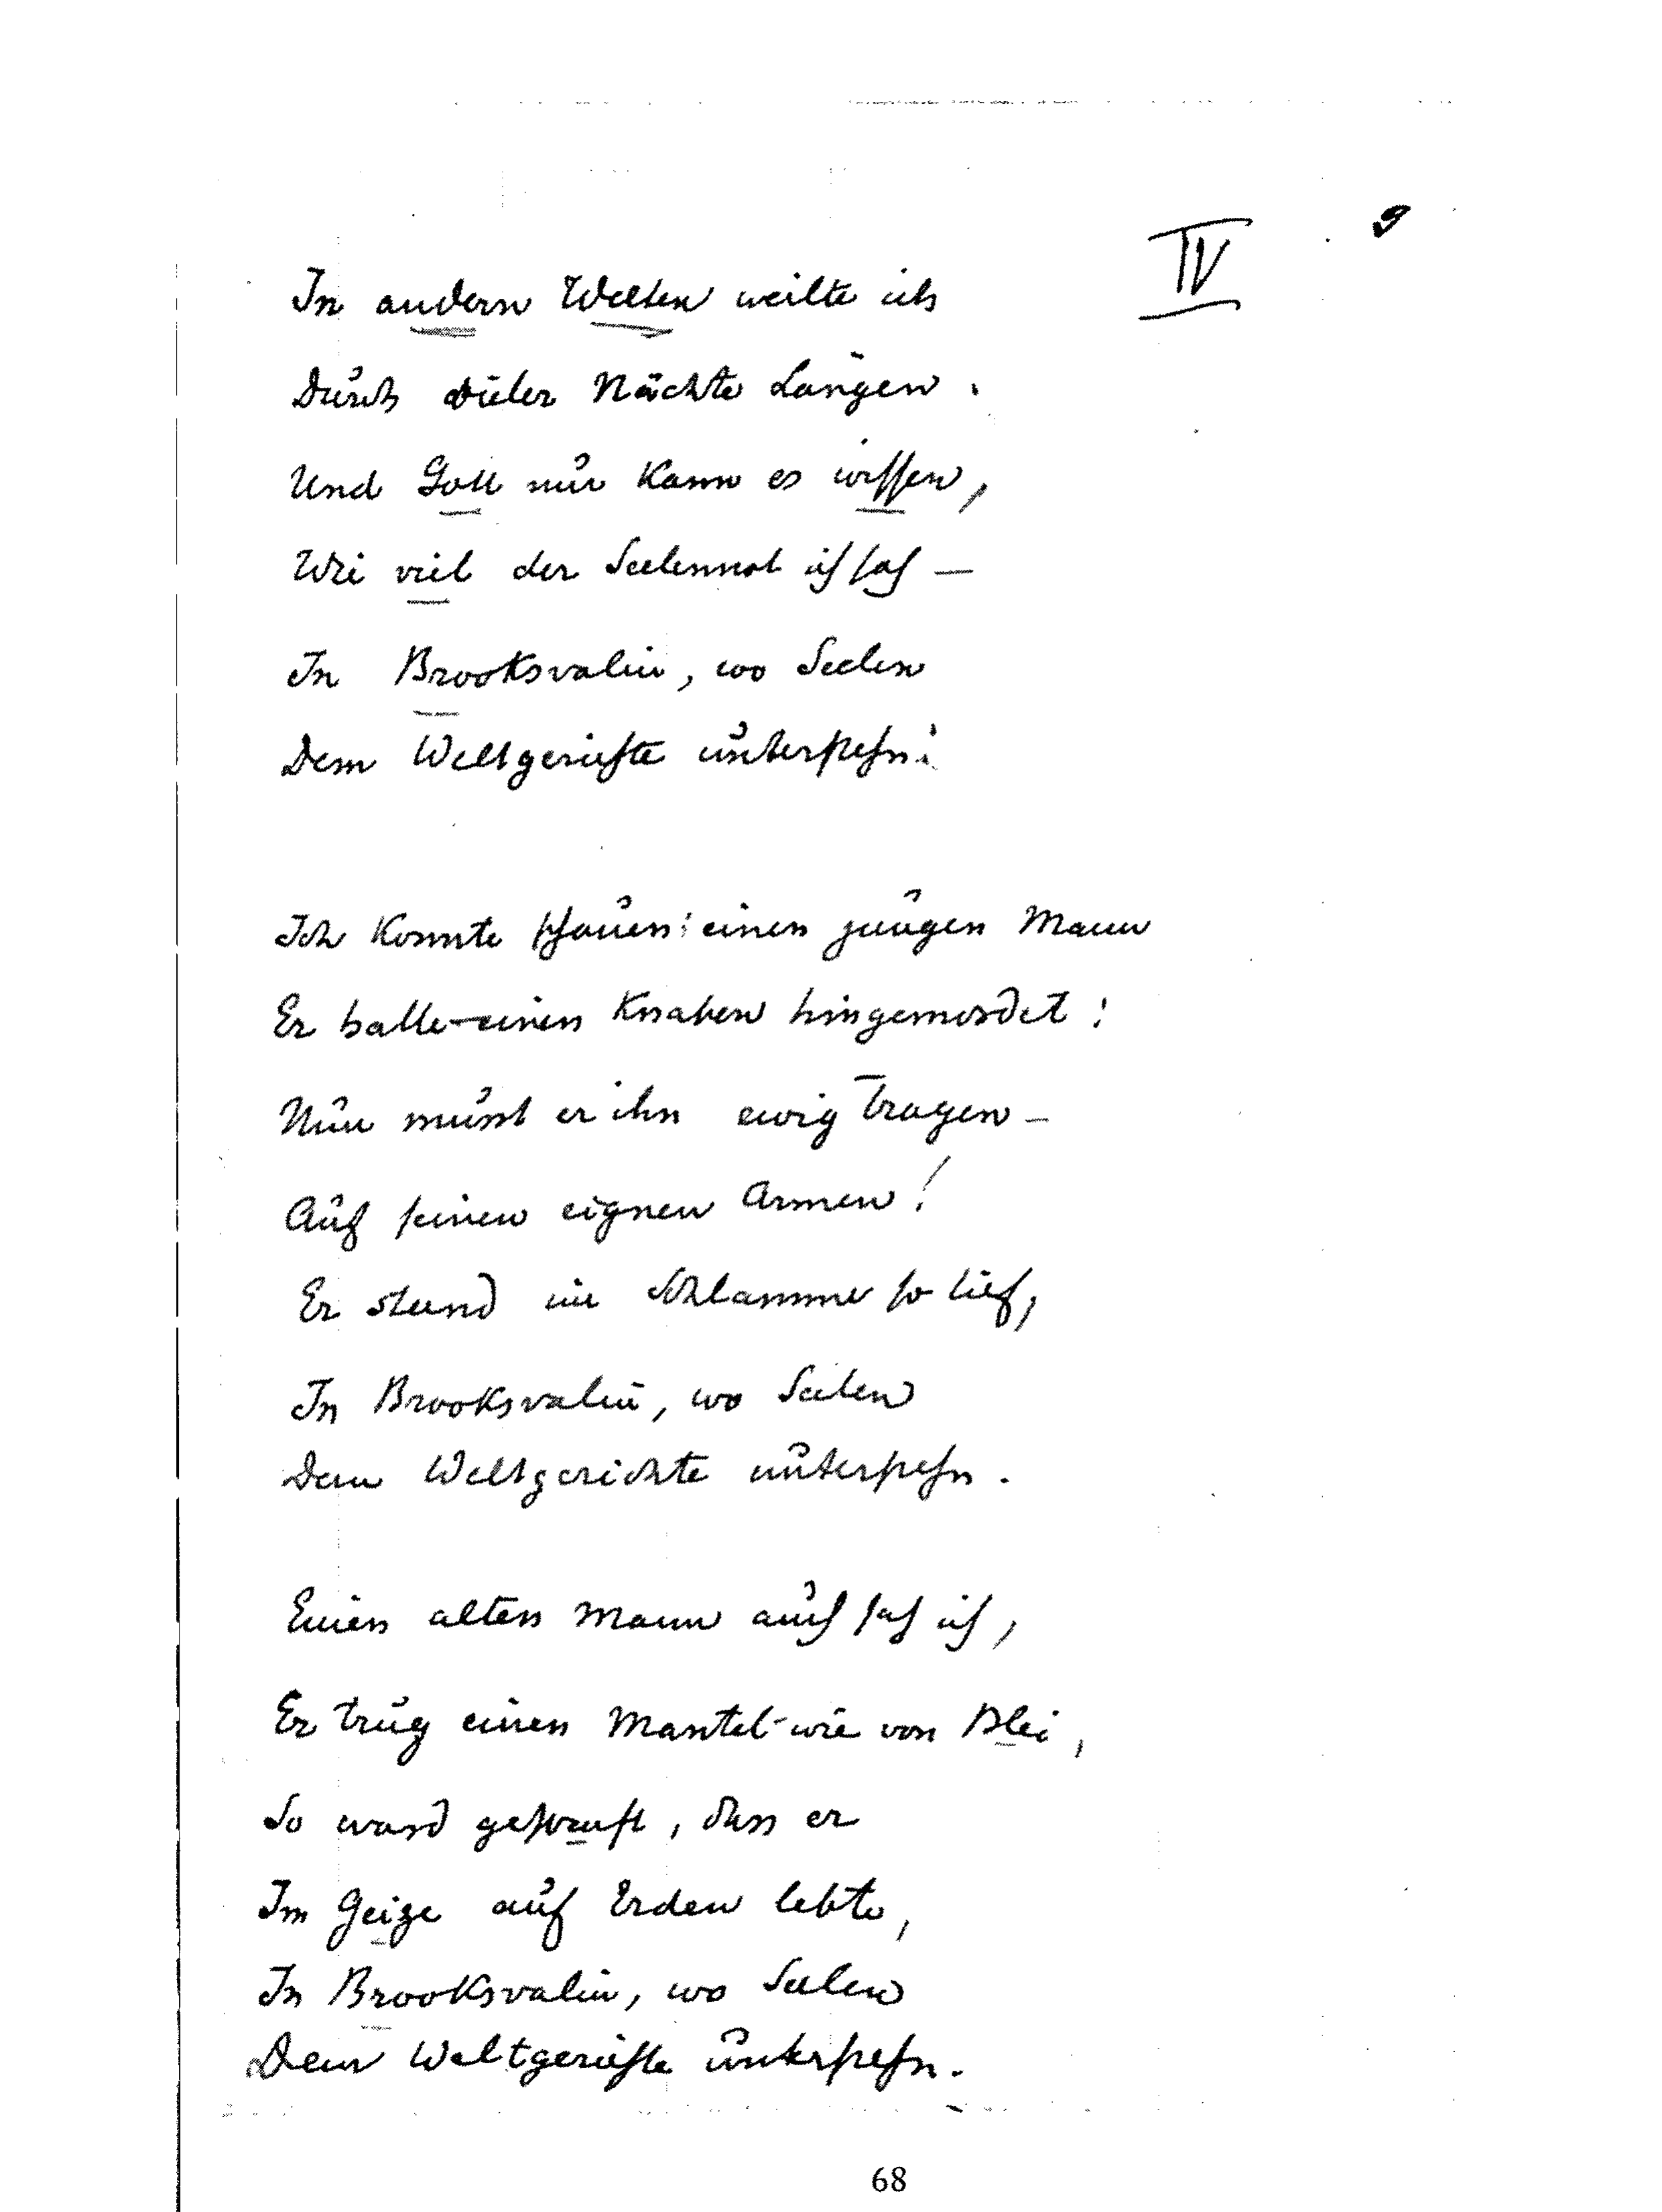 IV
9
In andern Welten weilte ich
Durch vieler Nächte Längen.
Und Gott nur kann es wissen,
Wie viel der Seelennot ich sah —
In Brooksvalin, wo Seelen
Dem Weltgerichte unterstehn.
Ich konnte schauen: einen jungen Mann
Er hatte einen Knaben hingemordet:
Nun musst er ihn ewig tragen —
Auf seinen eignen Armen!
Er stund im Schlamme so tief,
In Brooksvalin, wo Seelen
Dem Weltgerichte unterstehn.
Einen alten Mann auch sah ich,
Er trug einen Mantel wie von Blei,
So ward gestraft, dass er
Im Geize auf Erden lebte,
In Brooksvalin, wo Seelen
Dem Weltgerichte unterstehn.
68